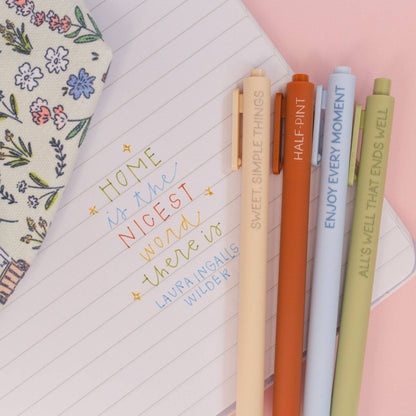 HOME
is the
NICEST
word
there is
LAURA INGALLS
WILDER
SWEET, SIMPLE THINGS
HALF-PINT
ENJOY EVERY MOMENT
ALL'S WELL THAT ENDS WELL